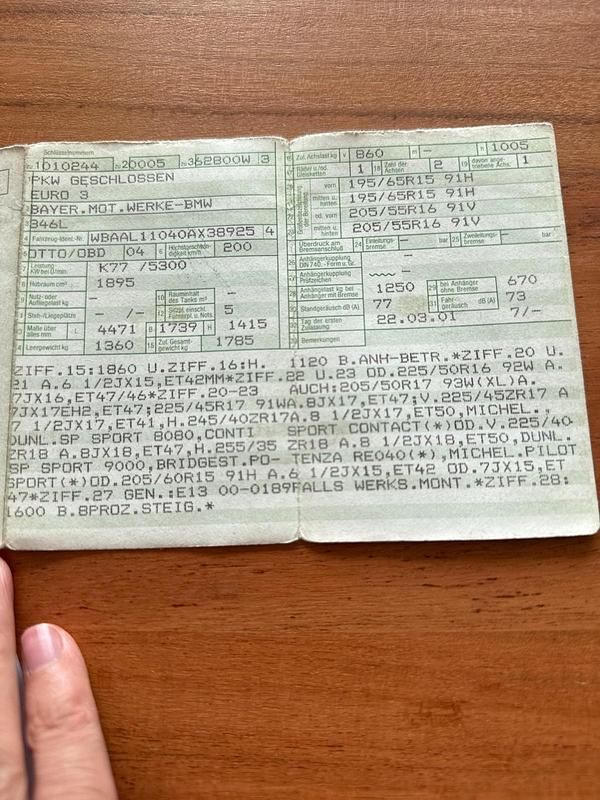 Schlüsselnummern
zu 1 010244 zu 2 0005 zu 3 362800W 3
PKW GESCHLOSSEN
EURO 3
BAYER.MOT.WERKE-BMW
346L
4 Fahrzeug-Ident.-Nr. WBAAL11040AX38925 4
OTTO/OBD 04 6 Höchstgeschwindigkeit km/h 200
7 Leistung KW bei U/min K77 /5300
8 Hubraum cm³ 1895
9 Nutz- oder Aufliegelast kg – 10 Rauminhalt des Tanks m³ –
11 Steh-/Liegeplätze – /– 12 Sitzpl. einschl. Führerpl. u. Nots. 5
13 Maße über alles mm L 4471 B 1739 H 1415
14 Leergewicht kg 1360 15 Zul. Gesamtgewicht kg 1785
16 Zul. Achslast kg v 860 m – h 1005
Räder u./od. Gleisketten 1 18 Zahl der Achsen 2 19 davon angetriebene Achs. 1
vorn 195/65R15 91H
mitten u. hinten 195/65R15 91H
od. vorn 205/55R16 91V
mitten u. hinten 205/55R16 91V
Überdruck am Bremsanschluß 24 Einleitungsbremse – bar 25 Zweileitungsbremse – bar
26 Anhängerkupplung DIN 740.. -Form u. Gr. –
27 Anhängerkupplung Prüfzeichen
28 Anhängelast kg bei Anhänger mit Bremse 1250 29 bei Anhänger ohne Bremse 670
30 Standgeräusch dB (A) 77 31 Fahrgeräusch dB (A) 73
32 Tag der ersten Zulassung 22.03.01 7/–
33 Bemerkungen
ZIFF.15:1860 U.ZIFF.16:H. 1120 B.ANH-BETR.*ZIFF.20 U.
21 A.6 1/2JX15,ET42MM*ZIFF.22 U.23 OD.225/50R16 92W A.
7JX16,ET47/46*ZIFF.20-23 AUCH:205/50R17 93W(XL)A.
7JX17EH2,ET47;225/45R17 91WA.8JX17,ET47;V.225/45ZR17 A
7 1/2JX17,ET41,H.245/40ZR17A.8 1/2JX17,ET50,MICHEL.,
DUNL.SP SPORT 8080,CONTI SPORT CONTACT(*)OD.V.225/40
ZR18 A.8JX18,ET47,H.255/35 ZR18 A.8 1/2JX18,ET50,DUNL.
SP SPORT 9000,BRIDGEST.PO- TENZA RE040(*),MICHEL.PILOT
SPORT(*)OD.205/60R15 91H A.6 1/2JX15,ET42 OD.7JX15,ET
47*ZIFF.27 GEN.:E13 00-0189FALLS WERKS.MONT.*ZIFF.28:
1600 B.8PROZ.STEIG.*